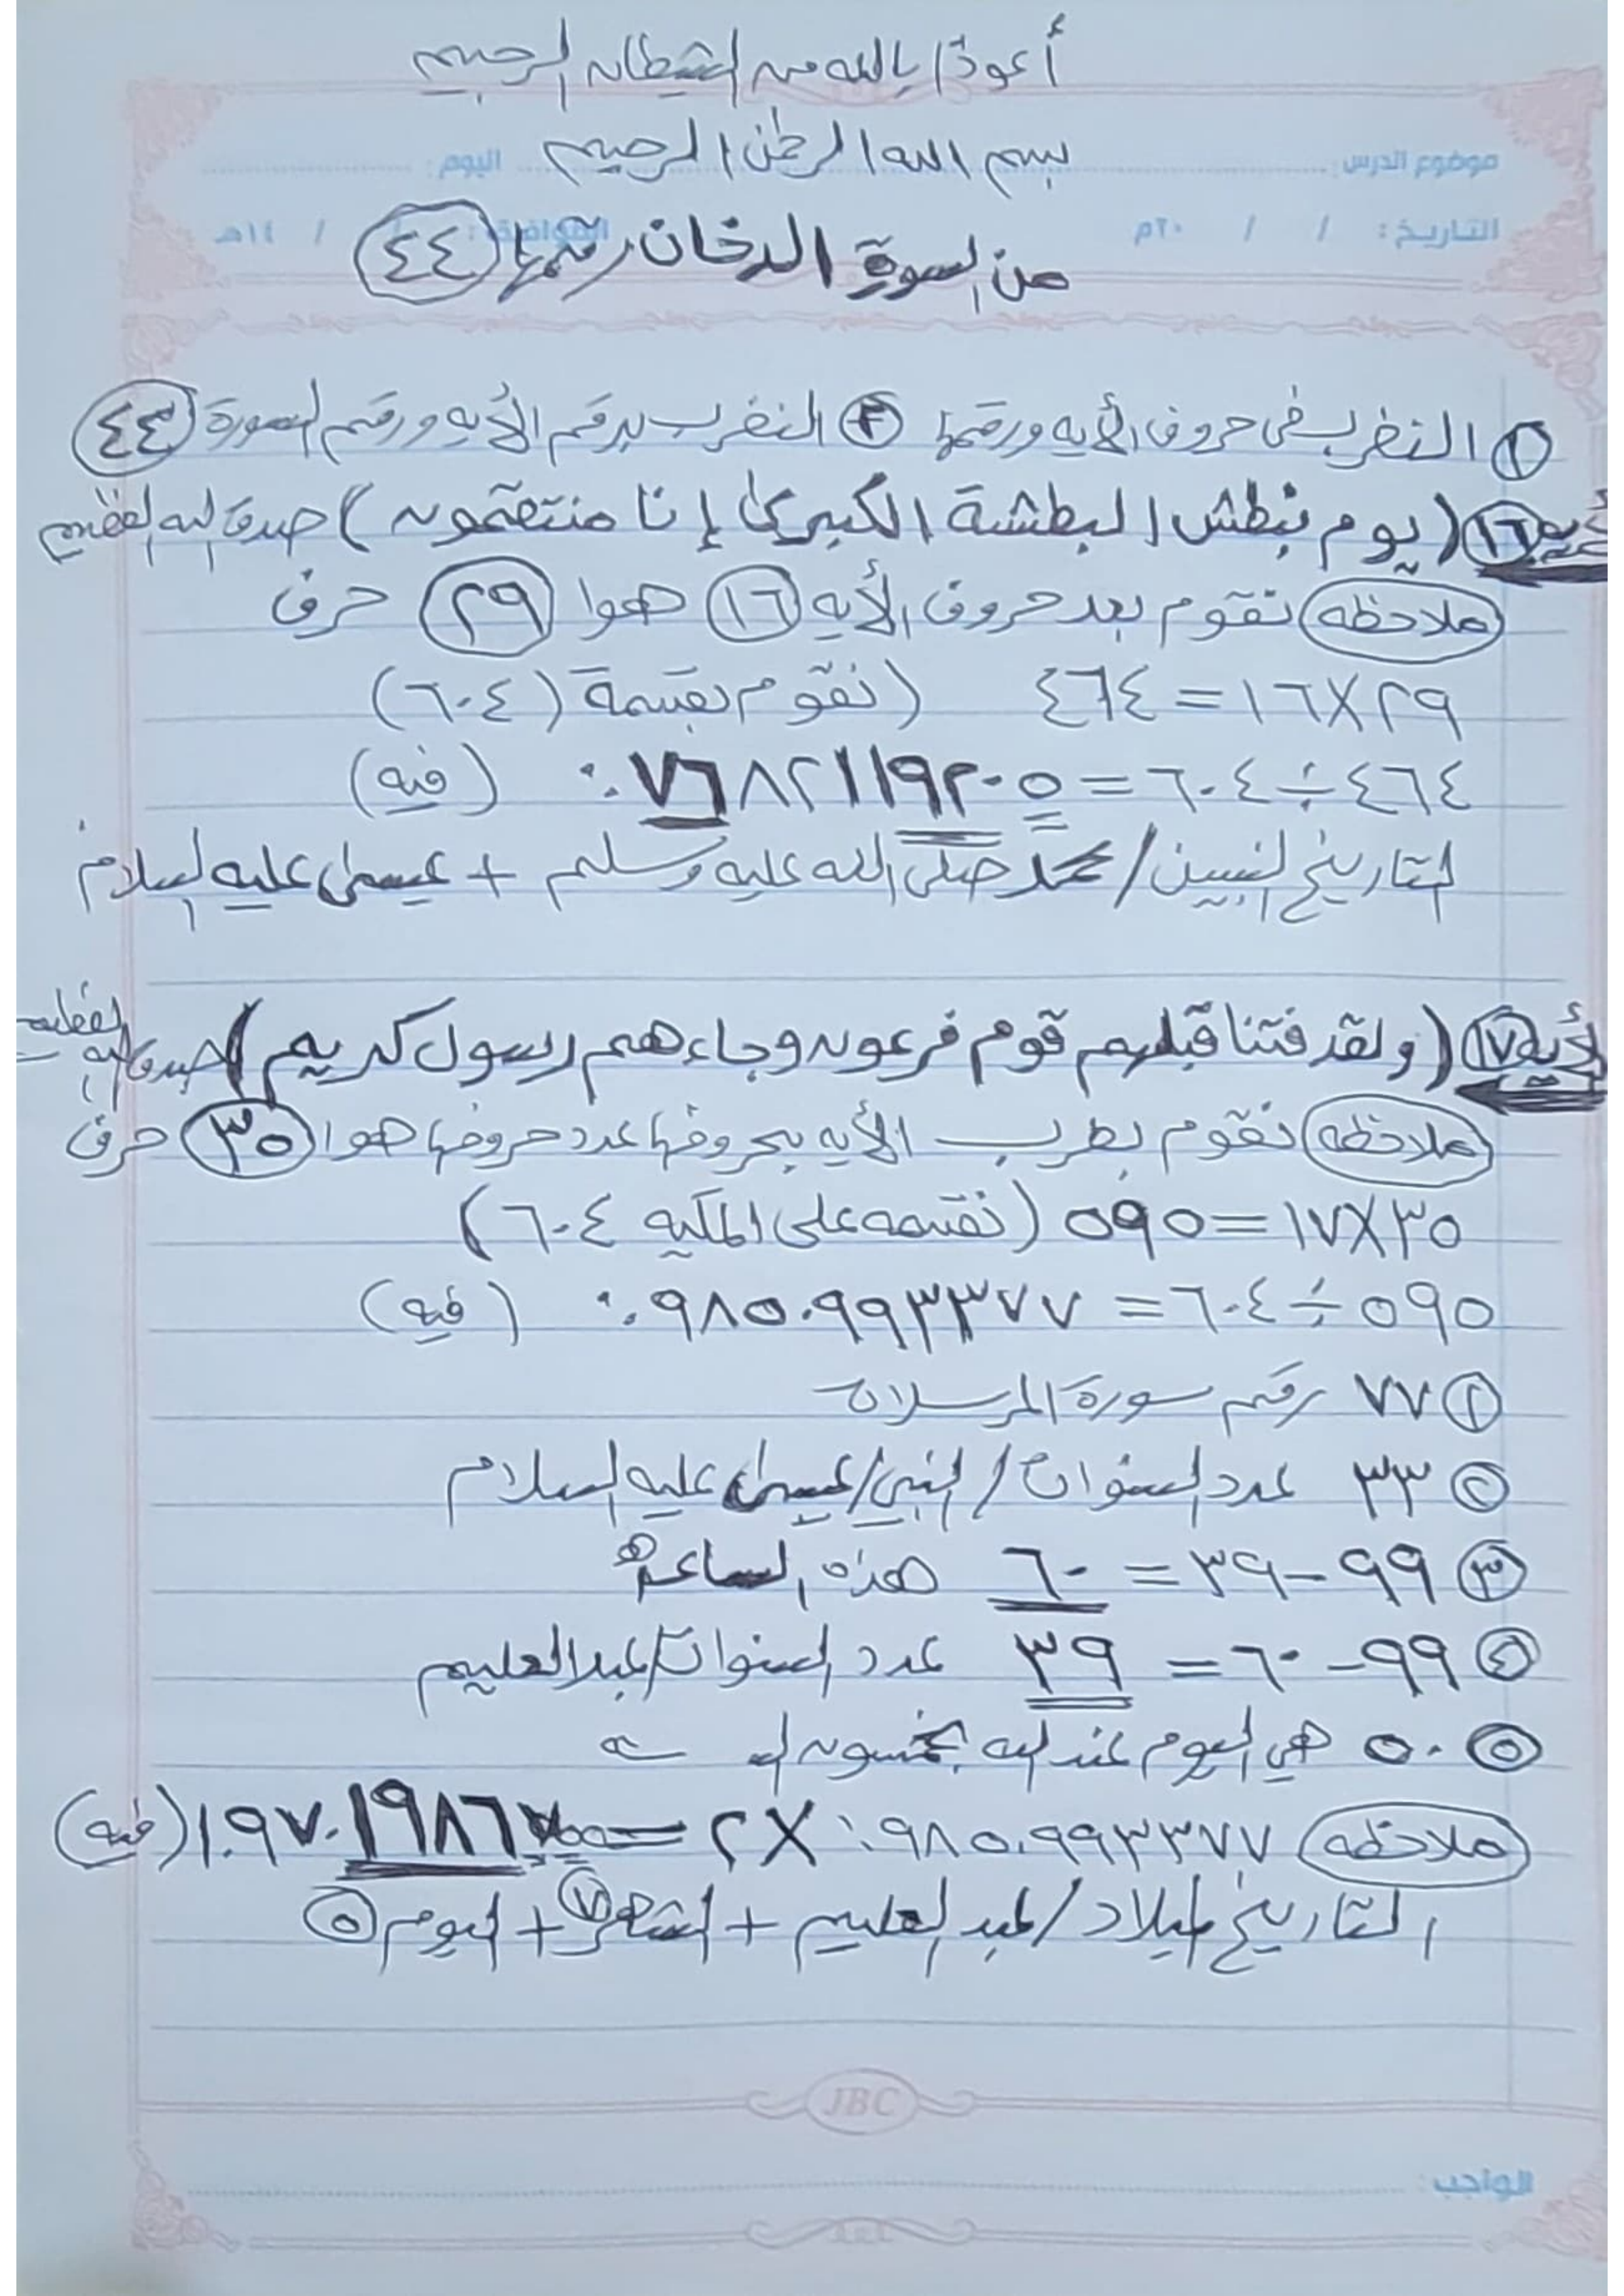 أعوذا بالله من الشيطان الرجيم
بسم الله الرحمن الرحيم
موضوع الدرس: اليوم:
من السورة الدخان رقمها ٤٤
التاريخ: / / ٢٠م الموافق: / / ١٤هـ
١ النضرب في حروف الأيه ورقمها ٢ النضرب برقم الأيه ورقم السورة ٤٤
أيه ١٦ (يوم نبطش البطشة الكبرى إنا منتقمون) صدق الله العظيم
ملاحظه نقوم بعد حروف الأيه ١٦ هوا ٢٩ حرف
٢٩×١٦=٤٦٤ (نقوم بقسمة (٦٠٤)
٤٦٤÷٦٠٤=٠.٧٦٨٢١١٩٢٠٥ (فيه)
التاريخ النبيين/محمد صلى الله عليه وسلم + عيسى عليه السلام
لأيه ١٧ (ولقد فتنا قبلهم قوم فرعون وجاءهم رسول كريم) صدق الله العظيم
ملاحظه نقوم بطرب الأيه بحروفها عدد حروفها هوا ٣٥ حرف
٣٥×١٧=٥٩٥ (نقسمه على المكيه ٦٠٤)
٥٩٥÷٦٠٤=٠.٩٨٥٠٩٩٣٣٧٧ (فيه)
١ ٧٧ رقم سورة المرسلات
٢ ٣٣ عدد السنوات/النبي/عيسى عليه السلام
٣ ٩٩-٣٩=٦٠ هذه الساعه
٤ ٩٩-٦٠=٣٩ عدد السنوات/عبدالعليم
٥ ٥٠ هي اليوم عند الله بخمسون
ملاحظه ٠.٩٨٥٠٩٩٣٣٧٧×٢=١.٩٧٠١٩٨٦٧ (فيه)
التاريخ ميلاد/عبدالعليم + الشهر ٧ + اليوم ٥
JBC
الواجب: